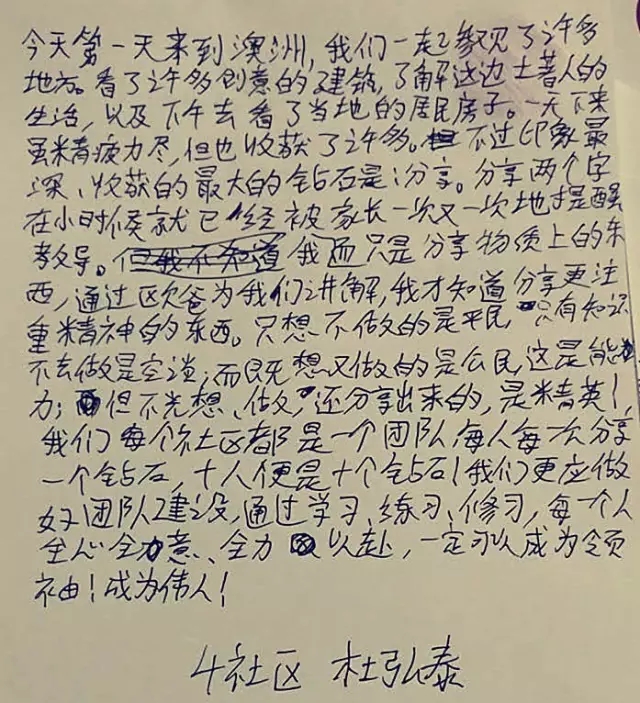 今天第一天来到澳洲，我们一起参观了许多
地方。看了许多创意的建筑，了解这边土著人的
生活，以及下午去看了当地的居民房子。一天下来
虽精疲力尽，但也收获了许多。不过印象最
深、收获的最大的钻石是：分享。分享两个字
在小时侯就已经被家长一次又一次地提醒
教导。但我不知道我而只是分享物质上的东
西，通过区欠爸为我们讲解，我才知道分享更注
重精神的东西。只想不做的是平民，只有知识
不去做是空谈；而既想又做的是公民，这是能
力；但不光想、做，还分享出来的，是精英！
我们每个社区都是一个团队，每人每一次分享
一个钻石，十人便是十个钻石！我们更应做
好团队建设，通过学习、练习、修习，每一个人
全心全意、全力以赴，一定可以成为领
袖！成为伟人！
4社区 杜弘泰